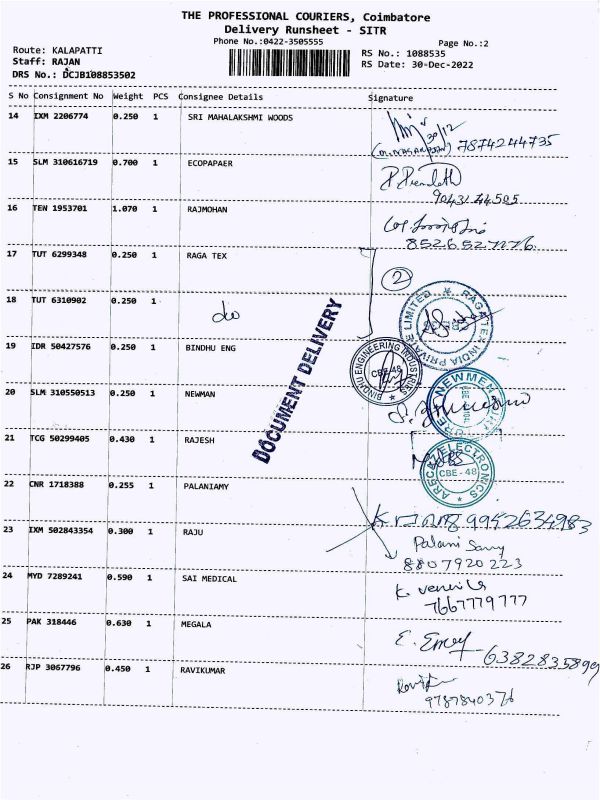 THE PROFESSIONAL COURIERS, Coimbatore
Delivery Runsheet - SITR
Phone No.:0422-3505555
Page No.:2
Route: KALAPATTI
Staff: RAJAN
DRS No.: DCJB108853502
RS No.: 1088535
RS Date: 30-Dec-2022
S No Consignment No Weight PCS Consignee Details Signature
14 IXM 2206774 0.250 1 SRI MAHALAKSHMI WOODS
30/12
7874244735
15 SLM 310616719 0.700 1 ECOPAPAER
16 TEN 1953701 1.070 1 RAJMOHAN
17 TUT 6299348 0.250 1 RAGA TEX
2
18 TUT 6310902 0.250 1 do
RAGATEX INDIA PRIVATE LIMITED
DOCUMENT DELIVERY
19 IDR 50427576 0.250 1 BINDHU ENG
BINDHU ENGINEERING INDUSTRIES
CBE-48
20 SLM 310550513 0.250 1 NEWMAN
21 TCG 50299405 0.430 1 RAJESH
ELECTRONICS
CBE - 48
22 CNR 1718388 0.255 1 PALANIAMY
9952634983
23 IXM 502843354 0.300 1 RAJU
Palani Samy
8807920223
24 MYD 7289241 0.590 1 SAI MEDICAL
7667779777
25 PAK 318446 0.630 1 MEGALA
6382835899
26 RJP 3067796 0.450 1 RAVIKUMAR
9787840376